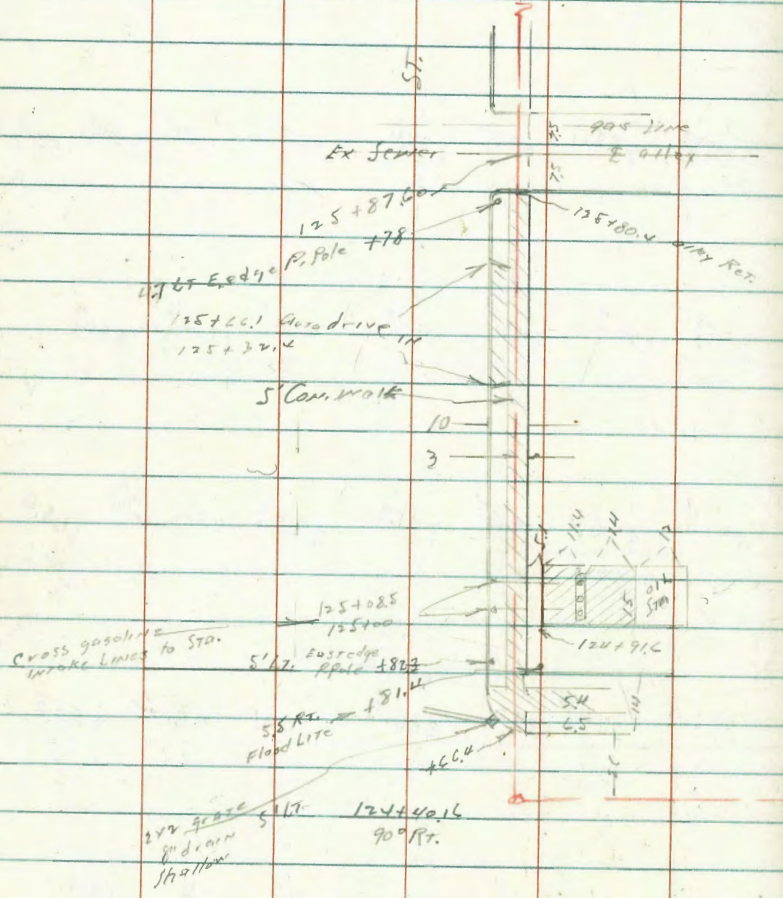 ST.
gas line
7.5
Ex sewer
₵ alley
7.5
125+87.60
125+80.4 alley Ret.
+78
4.7 LT E. edge P. Pole
125+66.1 Auto drive
125+32.4 IN
5' Con. walk
10
3
5.1
11.4
17
15
OIL
STA
125+08.5
125+00
Cross gasoline
intake lines to STA.
124+91.6
5' LT. East edge
P. Pole +82
+81.4
5.5 RT.
Flood LITE
5.4
6.5
14
+66.4
5' LT
2x2 grate
drain
shallow
124+40.16
90° RT.